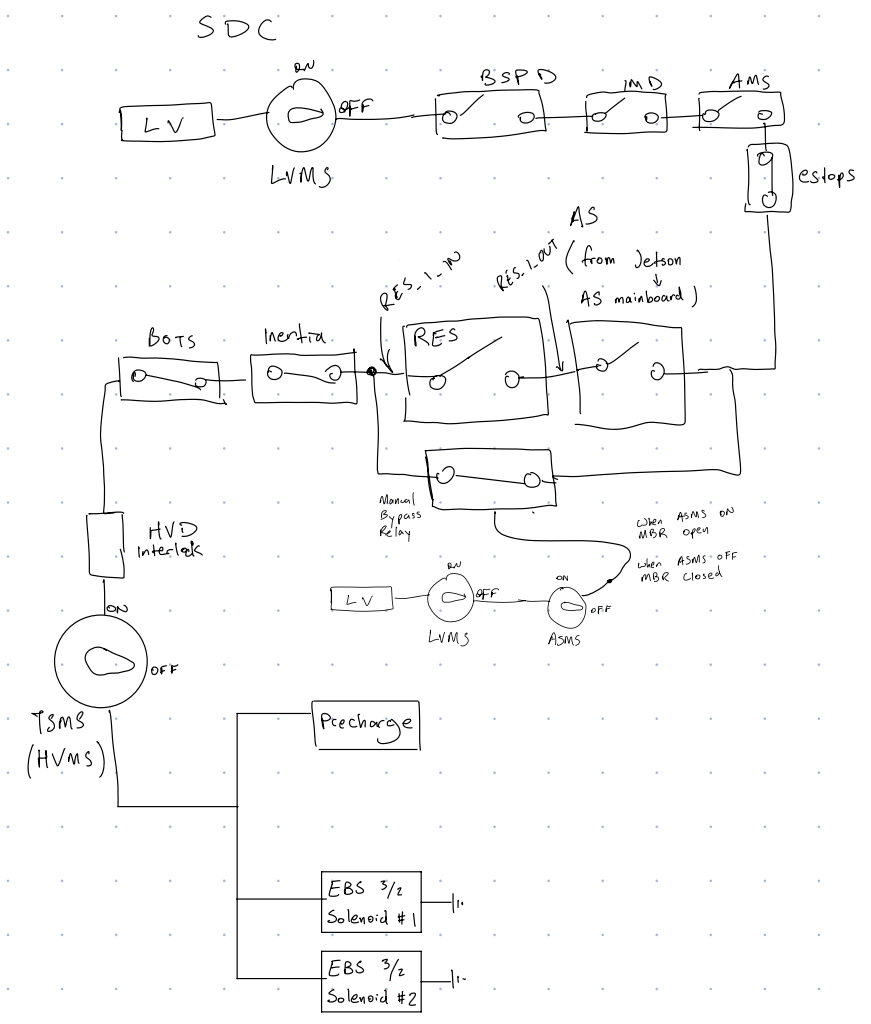 SDC
ON
BSPD
IMD
AMS
LV
OFF
LVMS
estops
AS
(from Jetson
AS mainboard)
RES_1_IN
RES_1_OUT
BOTS
Inertia
RES
Manual
Bypass
Relay
When ASMS ON
MBR open
When ASMS OFF
MBR closed
HVD
Interlock
ON
LV
OFF
LVMS
ON
OFF
ASMS
ON
OFF
TSMS
(HVMS)
Precharge
EBS 3/2
Solenoid #1
EBS 3/2
Solenoid #2